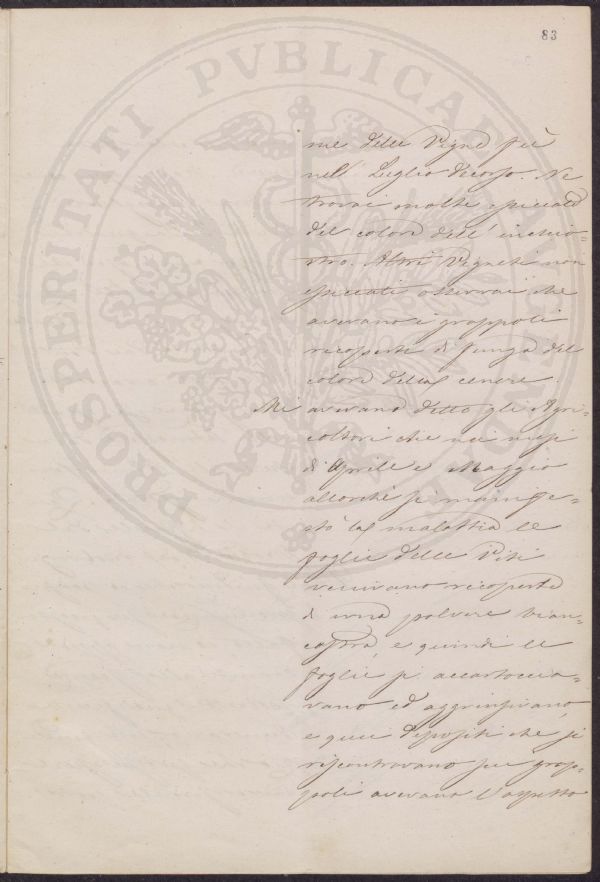 83
PROSPERITATI PVBLICAE AVGENDAE
me delle Vigne fù
nell' Luglio decorso. Ne
trovai molte spiccate
del colore dell' inchio=
stro. Altri Vigneti non
spiccati osservai che
avevano i grappoli
ricoperti di funga del
colore della cenere.
Mi avevano detto gli Agri=
coltori che nei mesi
di Aprile e Maggio
allorchè si manife=
stò la malattia le
foglie delle Viti
venivano ricoperte
di una polvere bian=
castra, e quindi le
foglie si accartoccia=
vano ed aggrinzivano,
e quei depositi che si
riscontravano sui grap=
poli avevano l'aspetto